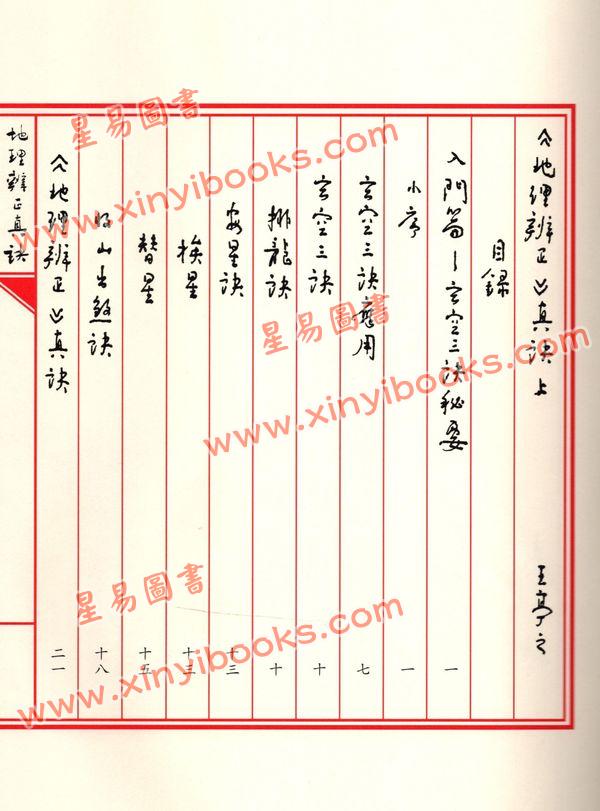 《地理辨正》真訣 上 王亭之
目録
入門篇—玄空三訣秘要 一
小序 一
玄空三訣應用 七
玄空三訣 十
排龍訣 十
安星訣 十三
挨星 十三
替星 十五
收山出煞訣 十八
《地理辨正》真訣 二一
地理辨正真訣
星易圖書
www.xinyibooks.com
星易圖書
www.xinyibooks.com
星易圖書
www.xinyibooks.com